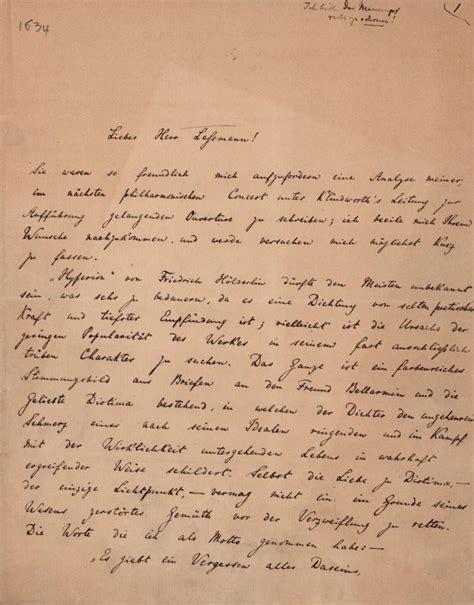 Ich bitte das Manuscript
nicht zu schonen!
1
1634
Liebes Herr Lessmann!
Sie waren so freundlich mich aufzufordern eine Analyse meiner,
im nächsten philharmonischen Concert unter Klindworth's Leitung zur
Aufführung gelangenden Ouverture zu schreiben; ich beeile mich Ihrem
Wunsche nachzukommen, und werde versuchen mich möglichst kurz
zu fassen.
"Hyperion" von Friedrich Hölderlin dürfte den Meisten unbekannt
sein, was sehr zu bedauern, da es eine Dichtung von selten poetischer
Kraft und tiefster Empfindung ist; vielleicht ist die Ursache der
geringen Popularität des Werkes in seinem fast ausschließlich
trüben Charakter zu suchen. Das Ganze ist ein farbenreiches
Stimmungsbild aus Briefen an den Freund Bellarmin und die
Geliebte Diotima bestehend, in welchen der Dichter den ungeheuren
Schmerz eines nach seinen Idealen ringenden und im Kampf
mit der Wirklichkeit untergehenden Lebens in wahrhaft
ergreifender Weise schildert. Selbst die Liebe zu Diotima, —
der einzige Lichtpunkt, — vermag nicht ein im Grunde seines
Wesens zerstörtes Gemüth vor der Verzweiflung zu retten.
Die Worte die ich als Motto genommen habe: —
"Es giebt ein Vergessen alles Daseins,